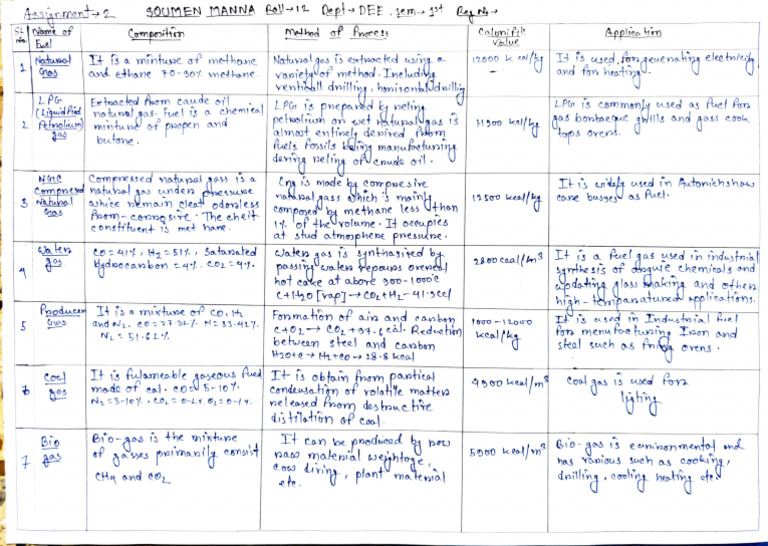 Assignment → 2 SOUMEN MANNA Roll → 12 Dept → DEE . sem → 1st Reg No →
SL No. Name of Fuel Composition Method of Process Calorific value Application
1 Natural Gas
It is a mixture of methane
and ethane 70-90% methane.
Natural gas is extracted using a
variety of method. Including
ventical drilling, horisonhal drilling
12000 k cal/kg
It is used for generating electricity
and for heating.
2 LPG
(Liquified
Petrolium)
gas
Extracted from caude oil
natural gas. Fuel is a chemical
mixture of propen and
butone.
LPG is prepared by reling
petrolium on wet natural gas is
almost entirely derived from
fuels fossils being manufacturing
dering reling of crude oil.
11900 kcal/kg
LPG is commonly used as fuel for
gas bonbaque grills and gass cook
tops ovens.
3
Compresed
Natural
Gas
Compressed natural gass is a
natural gas under pressure
whice remain cleat odonless
from - corrosire . The cheit
constituent is met hane.
Cng is made by compresive
natural gass which is mainly
composed by methane less than
1% of the volume. It occupies
at stud atmosphere pressure.
12500 kcal/kg
It is widely used in
care busges as fuel.
4 Water
gas
CO = 41%, H2 = 51%, Satarated
hydrocarbon = 4%. CO2 = 4%.
Water gas is synthasised by
passing water
hot cake at above 900-1000°c
C+H2O [vap] → CO2+H2-41.9cal
2800 ccal/m3
It is a fuel gas used in industrial
synthesis of chemicals and
updating glass making and others
high-tempanatured applications.
5 Producer
Gas
It is a mixture of CO, H2
and N2.
N2 = 51.62%.
Formation of air and carbon
C+O2 → CO2 + 97.6 cal. Reduction
between steel and carbon
H2O+C → H2+CO → 28.8 kcal
1000-12000
kcal/kg
It is used in Industrial fuel
for menufacturing Iron and
steel such as ovens.
6 Coal
gas
It is fulameable gaseous fuel
made of cal. CO = 5-10%
N2 = 3-10%.
It is obtain from partical
condensation of rolatile matter
released from destructire
distilation of coal.
4900 kcal/m3
Coal gas is used for
lighting
7 Bio
gas
Bio-gas is the mixture
of gasses primarily consist
CH4 and CO2
It can be produced by row
raw material weightage,
cow diring, plant material
etc.
5900 kcal/m3
Bio-gas is environmental and
has rapious such as cooking,
drilling, cooling heating etc.